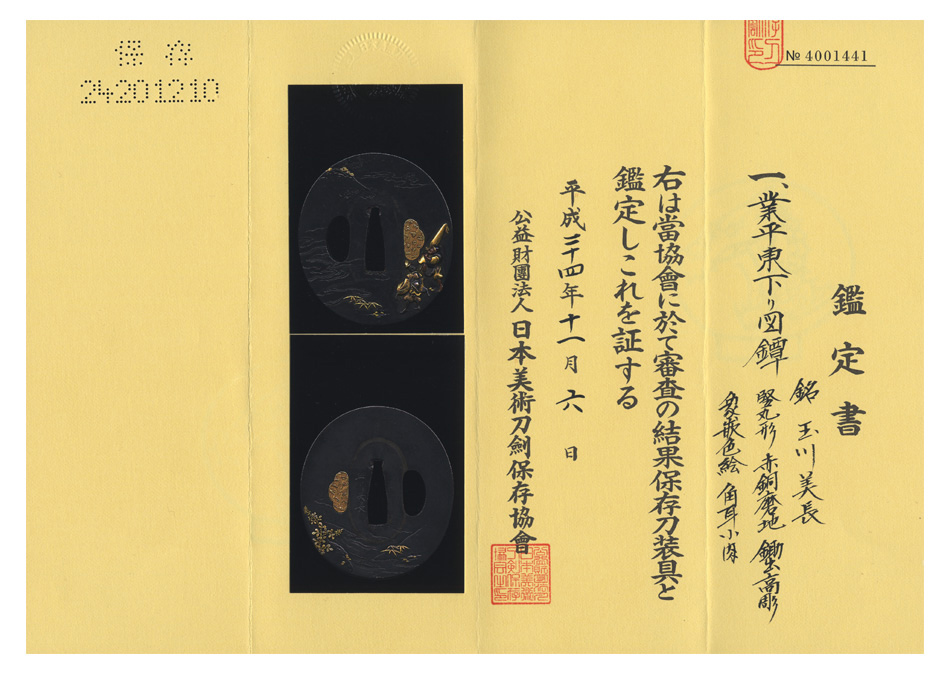 保存
24201210
№ 4001441
鑑定書
一、業平東下り図鐔
銘 玉川美長
竪丸形 赤銅磨地 鋤出高彫
象嵌色絵 角耳小肉
右は當協會に於て審査の結果保存刀装具と
鑑定しこれを証する
平成二十四年十一月六日
公益財團法人 日本美術刀剣保存協會